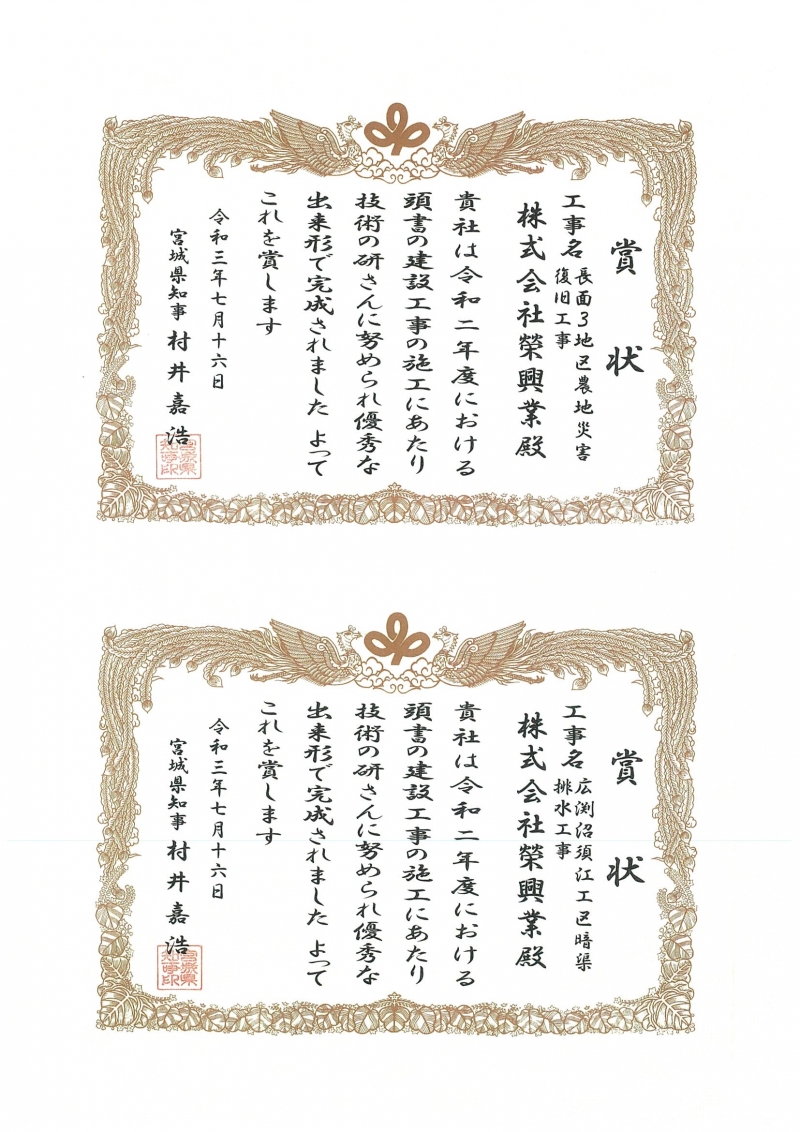 賞状
工事名 長面3地区農地災害
復旧工事
株式会社榮興業殿
貴社は令和二年度における
頭書の建設工事の施工にあたり
技術の研さんに努められ優秀な
出来形で完成されました よって
これを賞します
令和三年七月十六日
宮城県知事 村井嘉浩
宮城県
知事印
賞状
工事名 広渕沼須江工区暗渠
排水工事
株式会社榮興業殿
貴社は令和二年度における
頭書の建設工事の施工にあたり
技術の研さんに努められ優秀な
出来形で完成されました よって
これを賞します
令和三年七月十六日
宮城県知事 村井嘉浩
宮城県
知事印